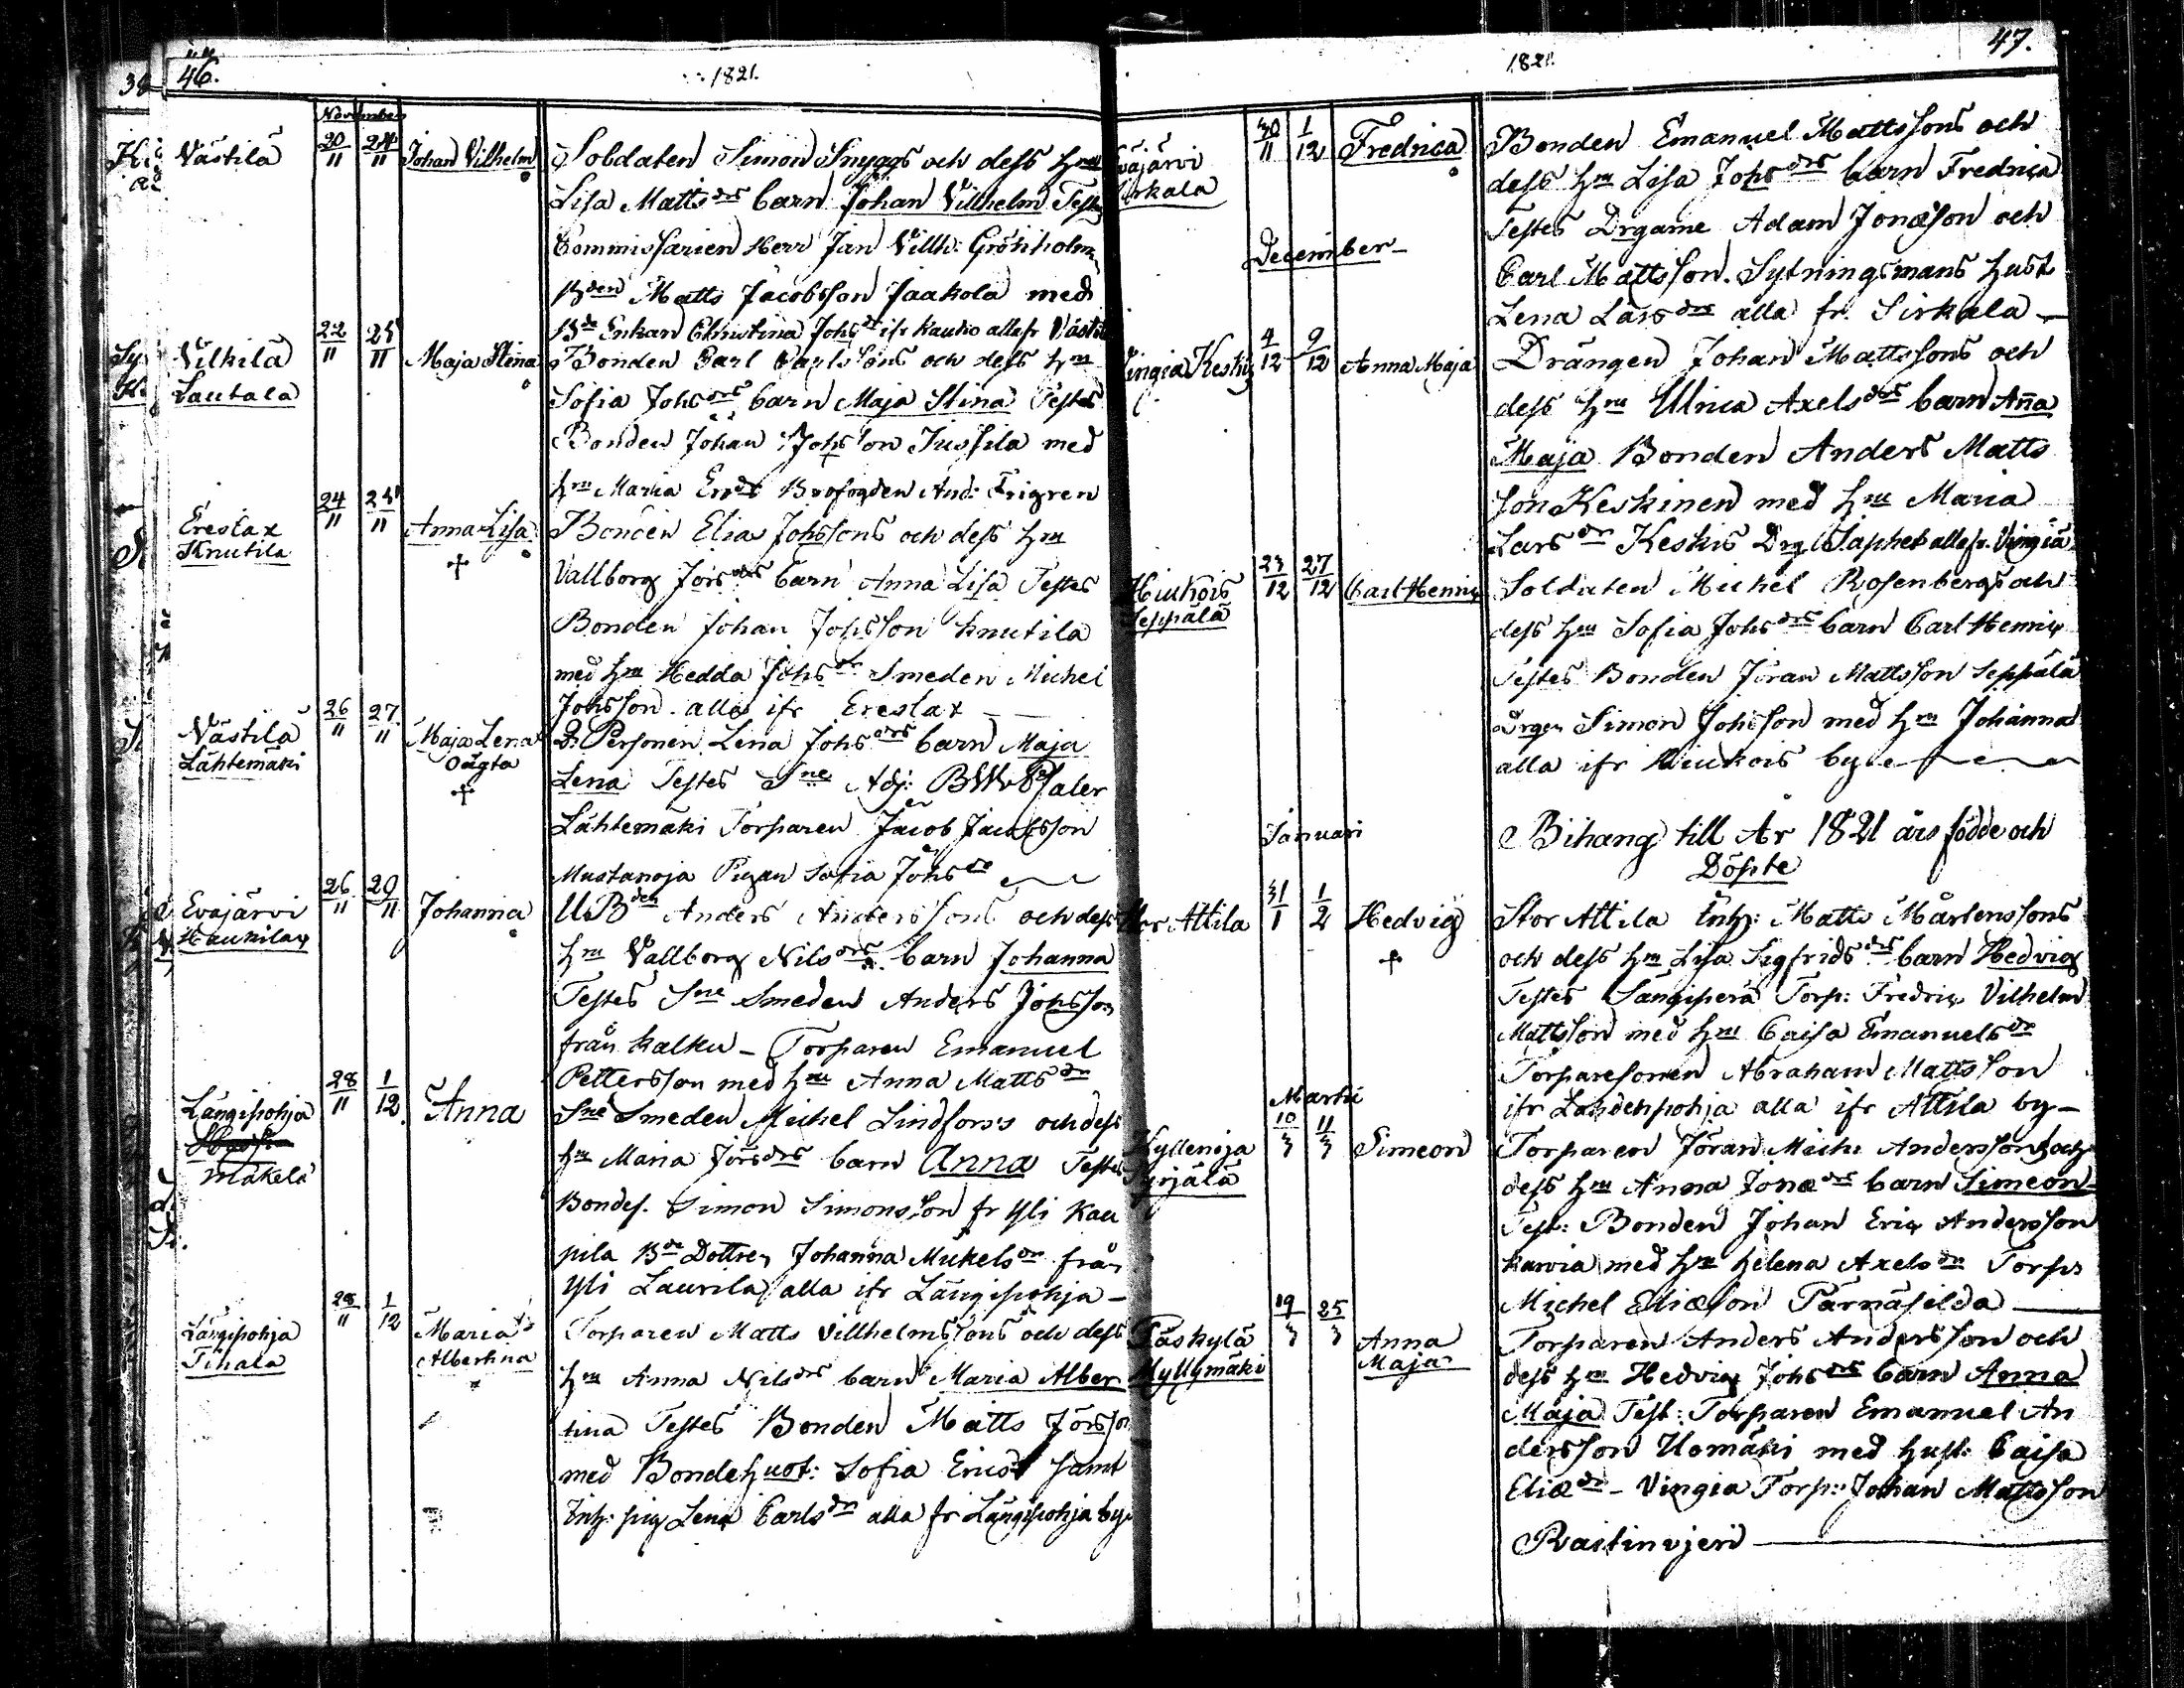 46.
1821.
November
Västilä
20/11 24/11
Johan Vilhelm
Soldaten Simon Snyggs och dess hru
Lisa Matts drs barn Johan Vilhelm Testes
Commissarien Herr Jan Villh: Grönholm
Bden Matts Jacobsson Jaakola med
Bde Enkan Christina Johs dr ifr Kauko alla fr Västilä
Vilkilä
Lautala
22/11 25/11
Maja Stina
Bonden Carl Carlssons och dess hru
Sofia Johs drs barn Maja Stina Testes
Bonden Johan Johsson Jussila med
hru Maria Ersdr Brofogden And: Frigren
Erestax
Knutila
24/11 25/11
Anna Lisa
Bonden Elia Johssons och dess hru
Vallborg Jörs drs barn Anna Lisa Testes
Bonden Johan Johsson Knutila
med hru Hedda Johs dr Smeden Michel
Johsson alla ifr Erestax
Västilä
Lähtemäki
26/11 27/11
Maja Lena
oägta
Q: Personen Lena Johs drs barn Maja
Lena Testes Sne Adj:
Lähtemäki Torparen Jacob Jacobsson
Mustanoja Pigan Sofia Johs dr
Evajärvi
Haukilax
26/11 29/11
Johanna
U Bden Anders Anderssons och dess
hru Vallborg Nils drs barn Johanna
Testes Sne Smeden Anders Johsson
från Kalku - Torparen Emanuel
Pettersson med hru Anna Matts dr
Längipohja
Mäkelä
28/11 1/12
Anna
Sne Smeden Michel Lindfors's och dess
hru Maria Jörs drs barn Anna Testes
Bondes. Simon Simonsson fr Yli Kau
pila Bde Dottren Johanna Mickels dr från
Yli Laurila alla ifr Längipohja -
Längipohja
Tihala
28/11 1/12
Maria
Albertina
Torparen Matts Villhelmssons och dess
hru Anna Nils drs barn Maria Alber
tina Testes Bonden Matts Jörsson
med Bondehust: Sofia Ericsdr samt
Inh: pig Lena Carls dr alla fr Längipohja by
1821.
47.
Evajärvi
Sirkala
30/11 1/12
Fredrica
Bonden Emanuel Mattssons och
dess hru Lisa Johs drs barn Fredrica
Testes Drgarne Adam Jonæson och
Carl Mattsson. Sytningsmans hust
Lena Lars dr alla fr. Sirkala -
December -
Vingia Keskis
4/12 9/12
Anna Maja
Drängen Johan Mattssons och
dess hru Ulrica Axels drs barn Aña
Maja Bonden Anders Matts
son Keskinen med hru Maria
Lars dr Keskis Drg Japhet alla fr. Vingiä
Hiukois
Seppälä
23/12 27/12
Carl Henric
Soldaten Michel Rosenbergs och
dess hru Sofia Johs drs barn Carl Henric
Testes Bonden Jöran Mattsson Seppälä
Drgen Simon Johsson med hru Johanna
alla ifr Hiukois by
Januari
Bihang till År 1821 års födde och
Döpte
Stor Attila
31/1 1/2
Hedvig
Stor Attila Inh: Matts Mårtenssons
och dess hru Lisa Sigfrids drs barn Hedvig
Testes Torp: Fredric Vilhelm
Mattsson med hru Caisa Emanuels dr
Torparesonen Abraham Mattsson
ifr Landenpohja alla ifr Attila by -
Martii
Kyllenoja
Syrjälä
10/3 11/3
Simeon
Torparen Jöran Mich: Anderssons och
dess hru Anna Jonæ drs barn Simeon -
Test: Bonden Johan Eric Andersson
Karvia med hru Helena Axels dr Torpn
Michel Eliæson Pärnäsilda
Päskylä
Myllymäki
19/3 25/3
Anna
Maja
Torparen Anders Andersson och
dess hru Hedvig Johs drs barn Anna
Maja Test: Torparen Emanuel An
dersson Uomäki med hust: Caisa
Eliæ dr - Vingia Torp: Johan Mattsson